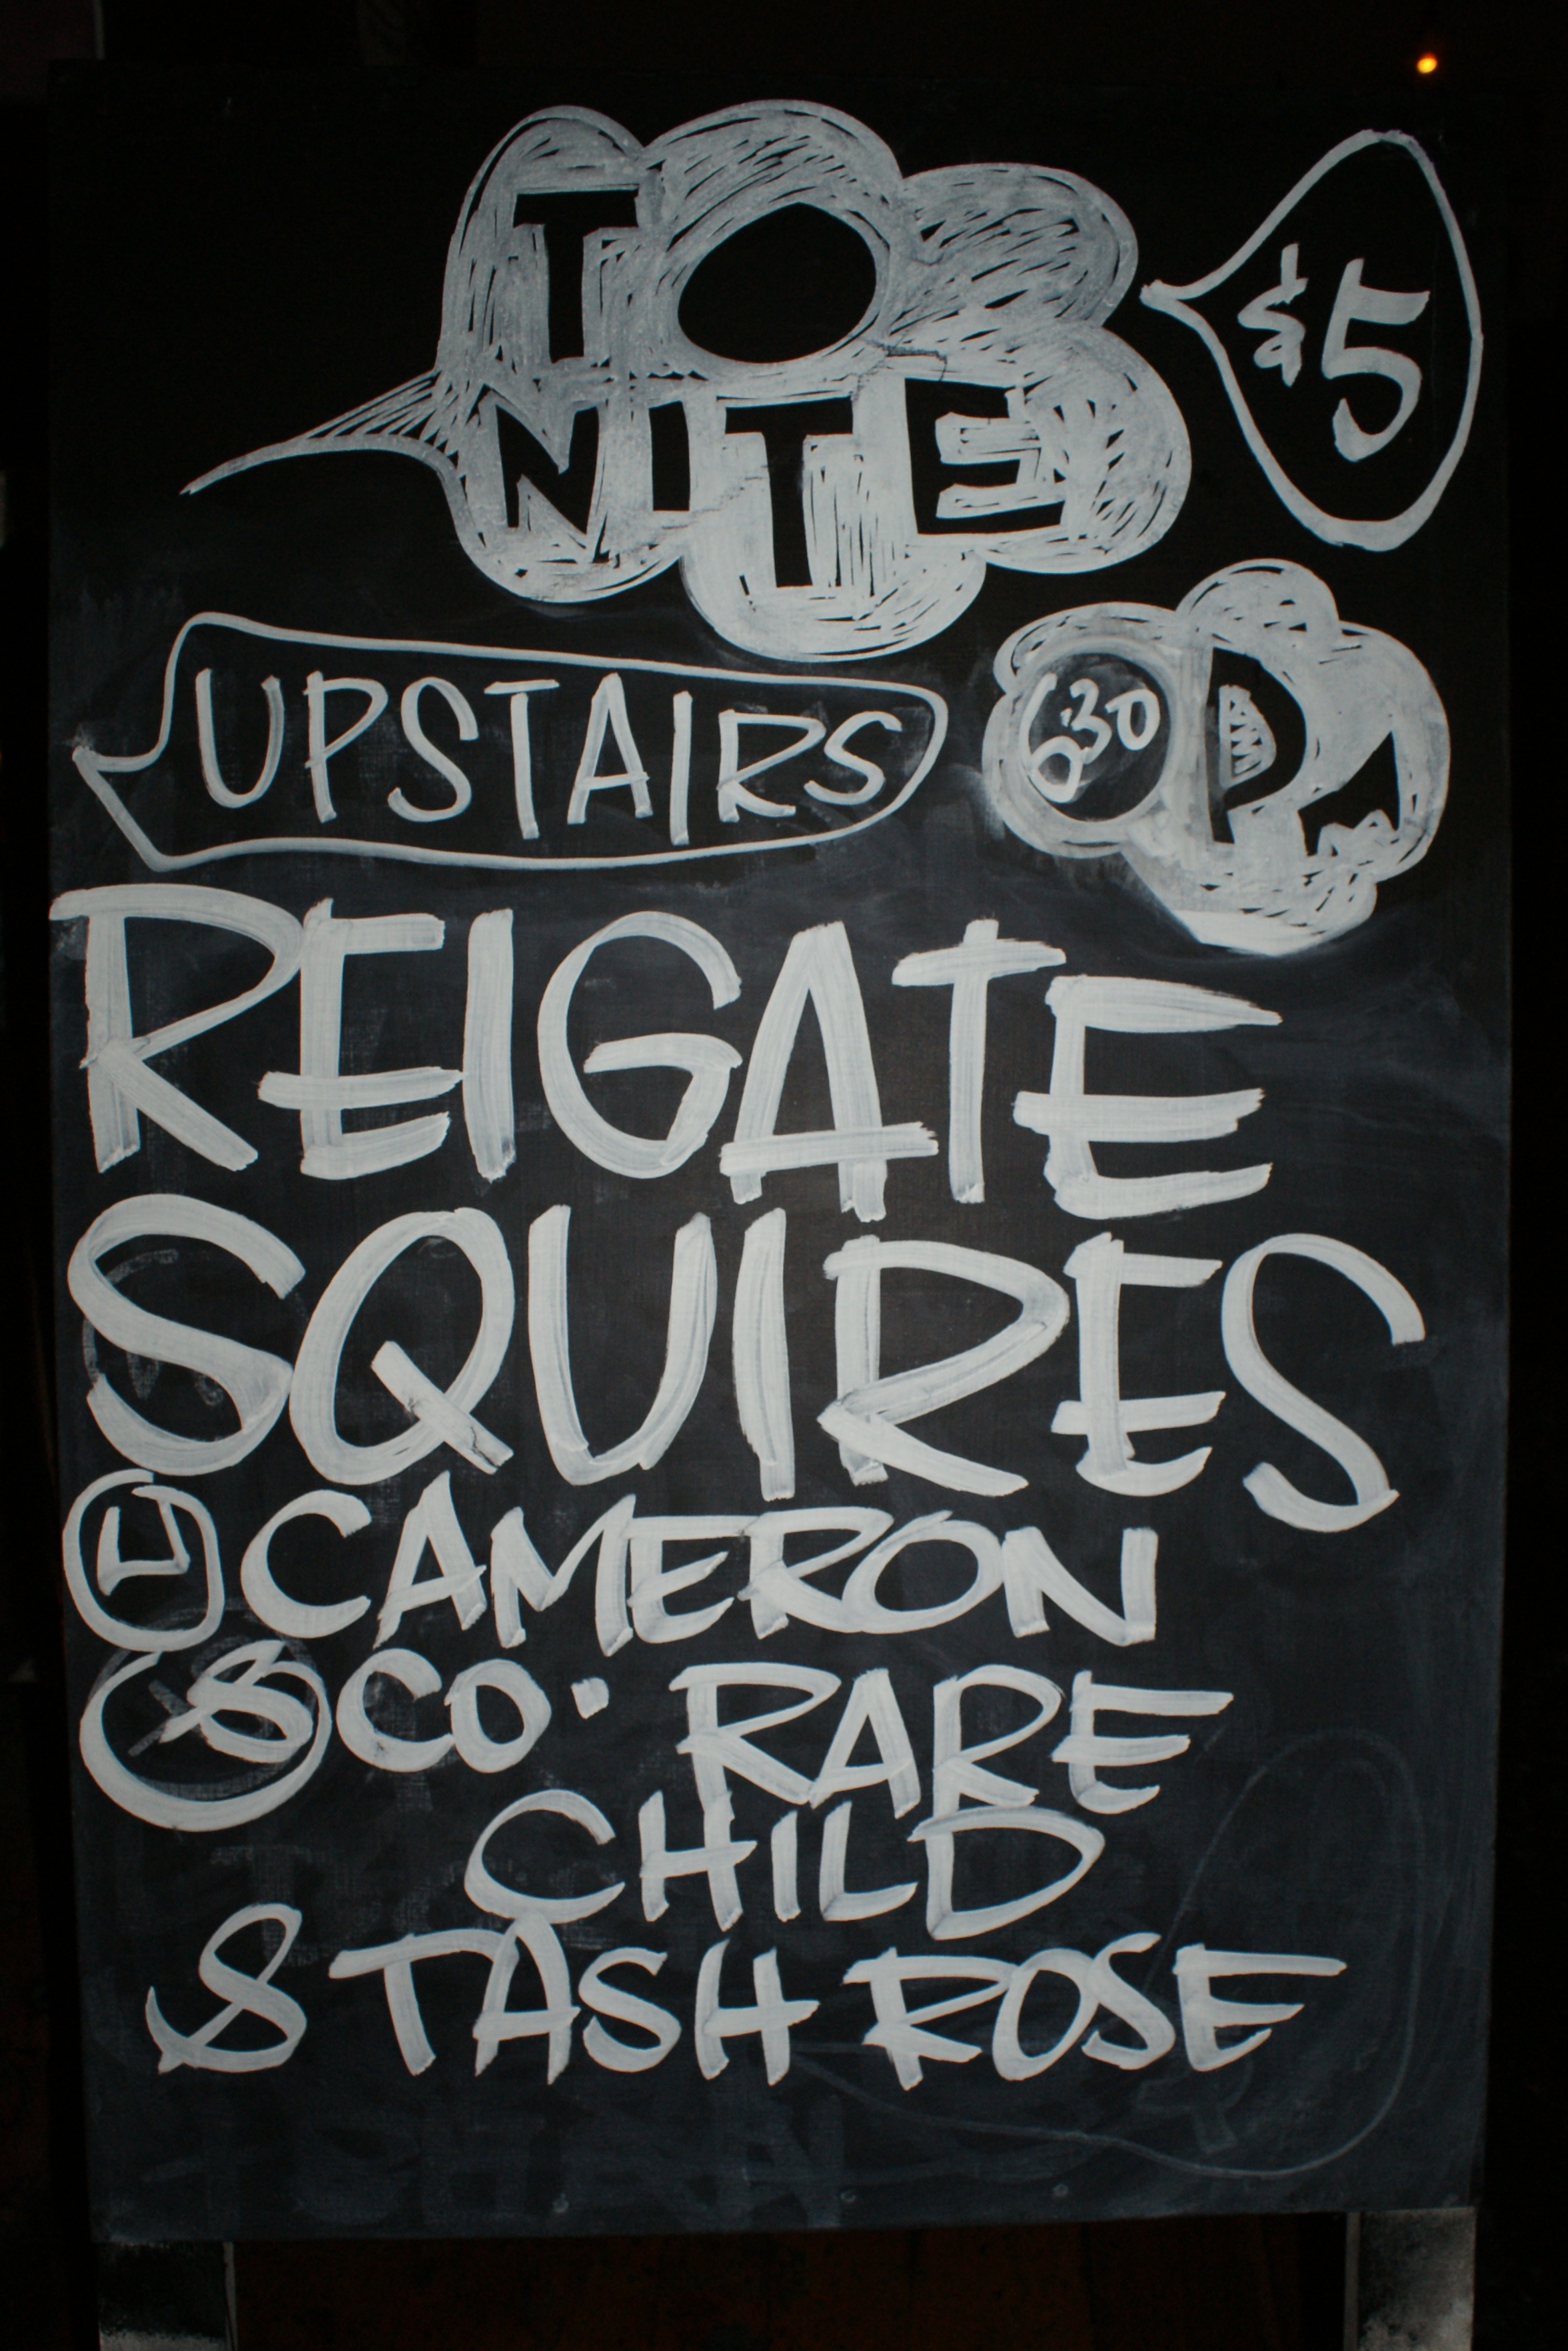 TO
NITE
$5
UPSTAIRS
PM
REIGATE
SQUIRES
CAMERON
& CO. RARE
CHILD
& TASH ROSE